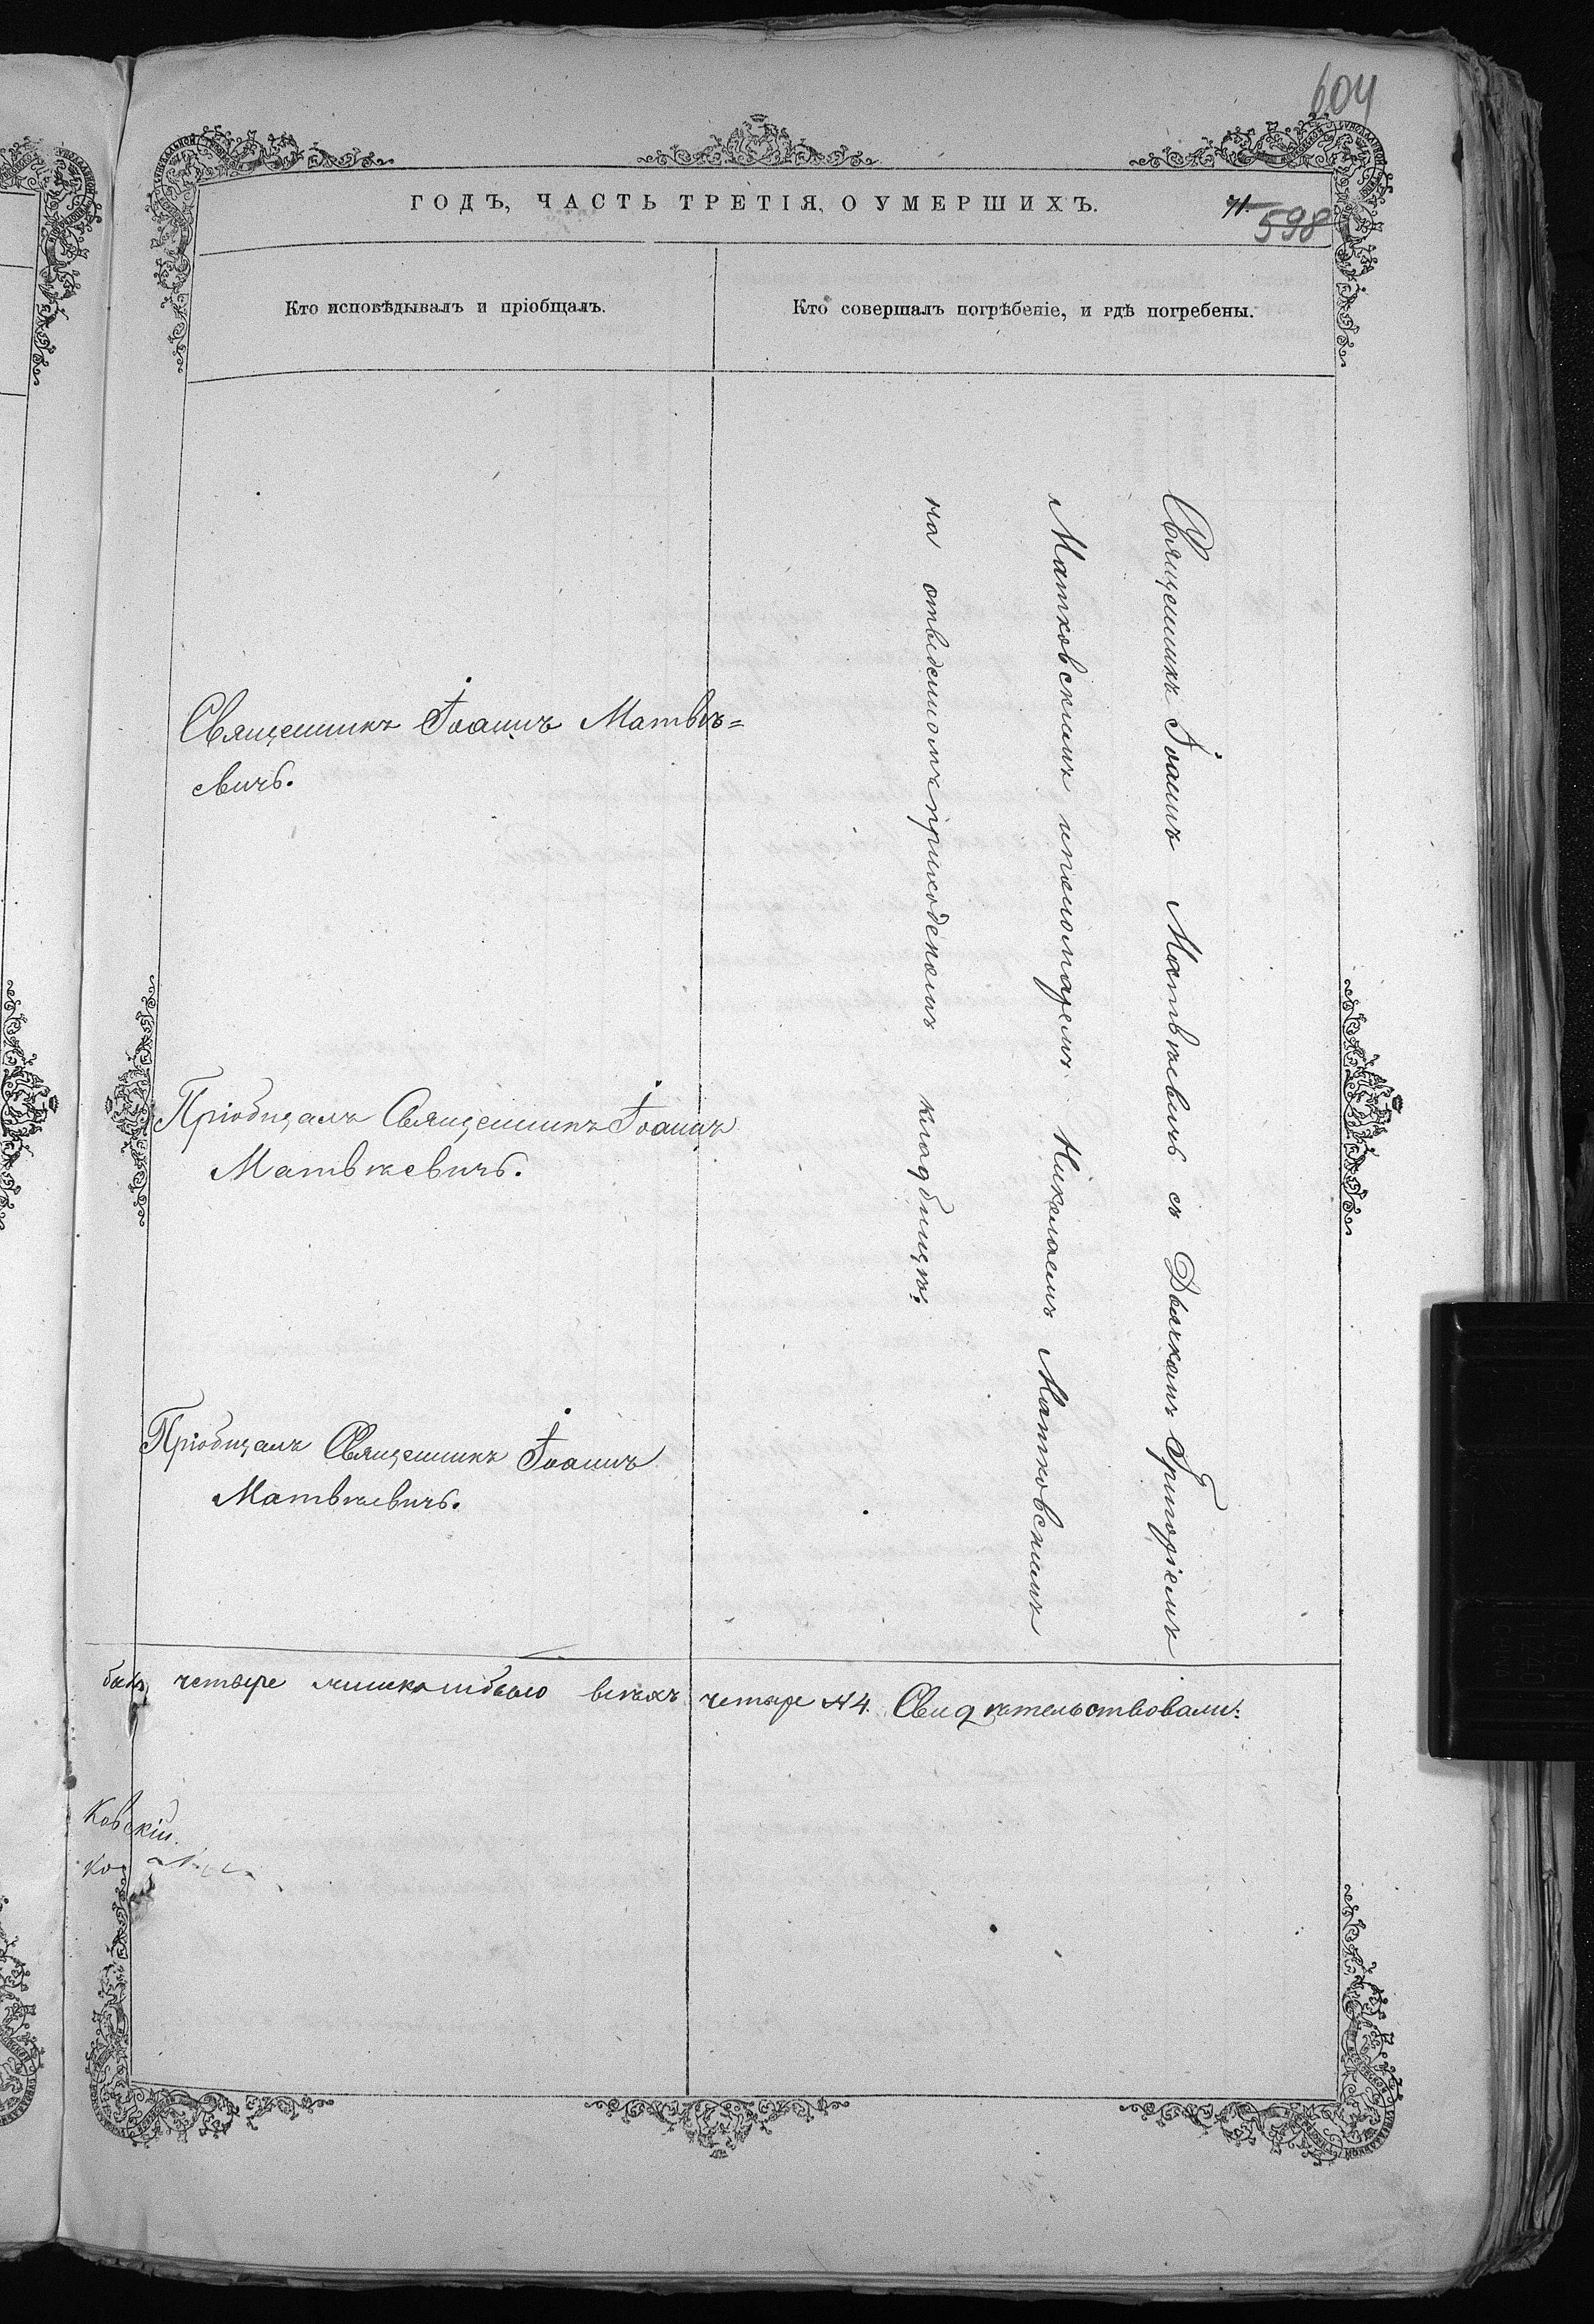 604
ГОДЪ, ЧАСТЬ ТРЕТІЯ, О УМЕРШИХЪ.
71.
598
Кто исповѣдывалъ и пріобщалъ.
Кто совершалъ погрѣбеніе, и гдѣ погребены.
Священникъ Іоаннъ Матвѣ=
евичъ.
Пріобщалъ Священникъ Іоаннъ
Матвѣевичъ.
Пріобщалъ Священникъ Іоаннъ
Матвѣевичъ.
Священникъ Іоаннъ Матвѣевичъ съ Дьячкомъ Григоріемъ
Матковскимъ и пономаремъ Николаемъ Матковскимъ
на отведенномъ приходскомъ кладбищѣ.
четыре всѣхъ четыре №4. Свидѣтельствовали:
ковскій.